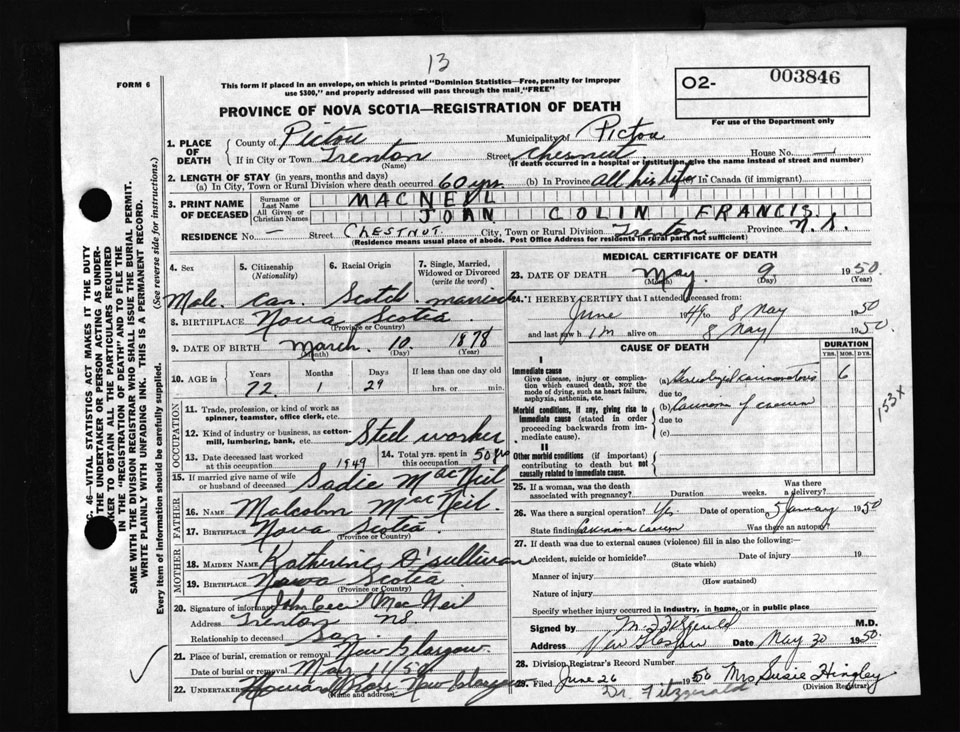 13
FORM 6
This form if placed in an envelope, on which is printed "Dominion Statistics—Free, penalty for improper
use $300," and properly addressed will pass through the mail "FREE"
PROVINCE OF NOVA SCOTIA—REGISTRATION OF DEATH
02- 003846
For use of the Department only
1. PLACE OF DEATH
County of Pictou Municipality of Pictou
If in City or Town Trenton (Name) Street Chesnut House No. —
(If death occurred in a hospital or institution, give the name instead of street and number)
2. LENGTH OF STAY (in years, months and days)
(a) In City, Town or Rural Division where death occurred 60 yrs. (b) In Province all his life In Canada (if immigrant)
3. PRINT NAME OF DECEASED
Surname or Last Name MACNEIL
All Given or Christian Names JOHN COLIN FRANCIS.
RESIDENCE No. — Street CHESTNUT. City, Town or Rural Division Trenton Province N.S.
(Residence means usual place of abode. Post Office Address for residents in rural parts not sufficient)
4. Sex Male.
5. Citizenship (Nationality) Can.
6. Racial Origin Scotch
7. Single, Married, Widowed or Divorced (write the word) married
8. BIRTHPLACE Nova Scotia
(Province or Country)
9. DATE OF BIRTH March 10. 1878
(Month) (Day) (Year)
10. AGE in Years 72. Months 1 Days 29 If less than one day old
hrs. or min.
OCCUPATION
11. Trade, profession, or kind of work as
spinner, teamster, office clerk, etc.
12. Kind of industry or business, as cotton-
mill, lumbering, bank, etc. Steel worker
13. Date deceased last worked
at this occupation 1949
14. Total yrs. spent in
this occupation 50 yrs
15. If married give name of wife
or husband of deceased Sadie MacNeil
FATHER
16. NAME Malcolm MacNeil.
17. BIRTHPLACE Nova Scotia
(Province or Country)
MOTHER
18. MAIDEN NAME Katherine O'Sullivan
19. BIRTHPLACE Nova Scotia
(Province or Country)
20. Signature of informant John Cecil MacNeil
Address Trenton NS.
Relationship to deceased Son.
21. Place of burial, cremation or removal New Glasgow
Date of burial or removal May 11/50
22. UNDERTAKER Howard New Glasgow
(Name and address)
MEDICAL CERTIFICATE OF DEATH
23. DATE OF DEATH May 9 1950.
(Month) (Day) (Year)
I HEREBY CERTIFY that I attended deceased from
June 1949 to 8 May 1950
and last saw him alive on 8 May 1950.
CAUSE OF DEATH
DURATION
YRS. MOS. DYS.
I
Immediate cause
Give disease, injury or complication which caused death, NOT the mode of dying, such as heart failure, asphyxia, asthenia, etc.
(a) Generalized carcinomatosis 6
due to
Morbid conditions, if any, giving rise to immediate cause (stated in order proceeding backwards from immediate cause).
(b) Carcinoma of caecum
due to
(c)
153X
II
Other morbid conditions (if important) contributing to death but not causally related to immediate cause.
25. If a woman, was the death
associated with pregnancy? Duration weeks. Was there a delivery?
26. Was there a surgical operation? Yes Date of operation 5 January 1950
State findings Carcinoma caecum Was there an autopsy?
27. If death was due to external causes (violence) fill in also the following:
Accident, suicide or homicide? Date of injury 19
(State which)
Manner of injury
(How sustained)
Nature of injury
Specify whether injury occurred in industry, in home, or in public place
Signed by M. Fitzgerald M.D.
Address New Glasgow Date May 30 1950.
28. Division Registrar's Record Number
29. Filed June 26 1950 Mrs Susie Hingley
(Division Registrar)
Dr. Fitzgerald
C. 46—VITAL STATISTICS ACT MAKES IT THE DUTY
THE UNDERTAKER OR PERSON ACTING AS UNDER-
KER TO OBTAIN ALL THE PARTICULARS REQUIRED
IN THE "REGISTRATION OF DEATH" AND TO FILE THE
SAME WITH THE DIVISION REGISTRAR WHO SHALL ISSUE THE BURIAL PERMIT.
WRITE PLAINLY WITH UNFADING INK. THIS IS A PERMANENT RECORD.
Every item of information should be carefully supplied. (See reverse side for instructions.)